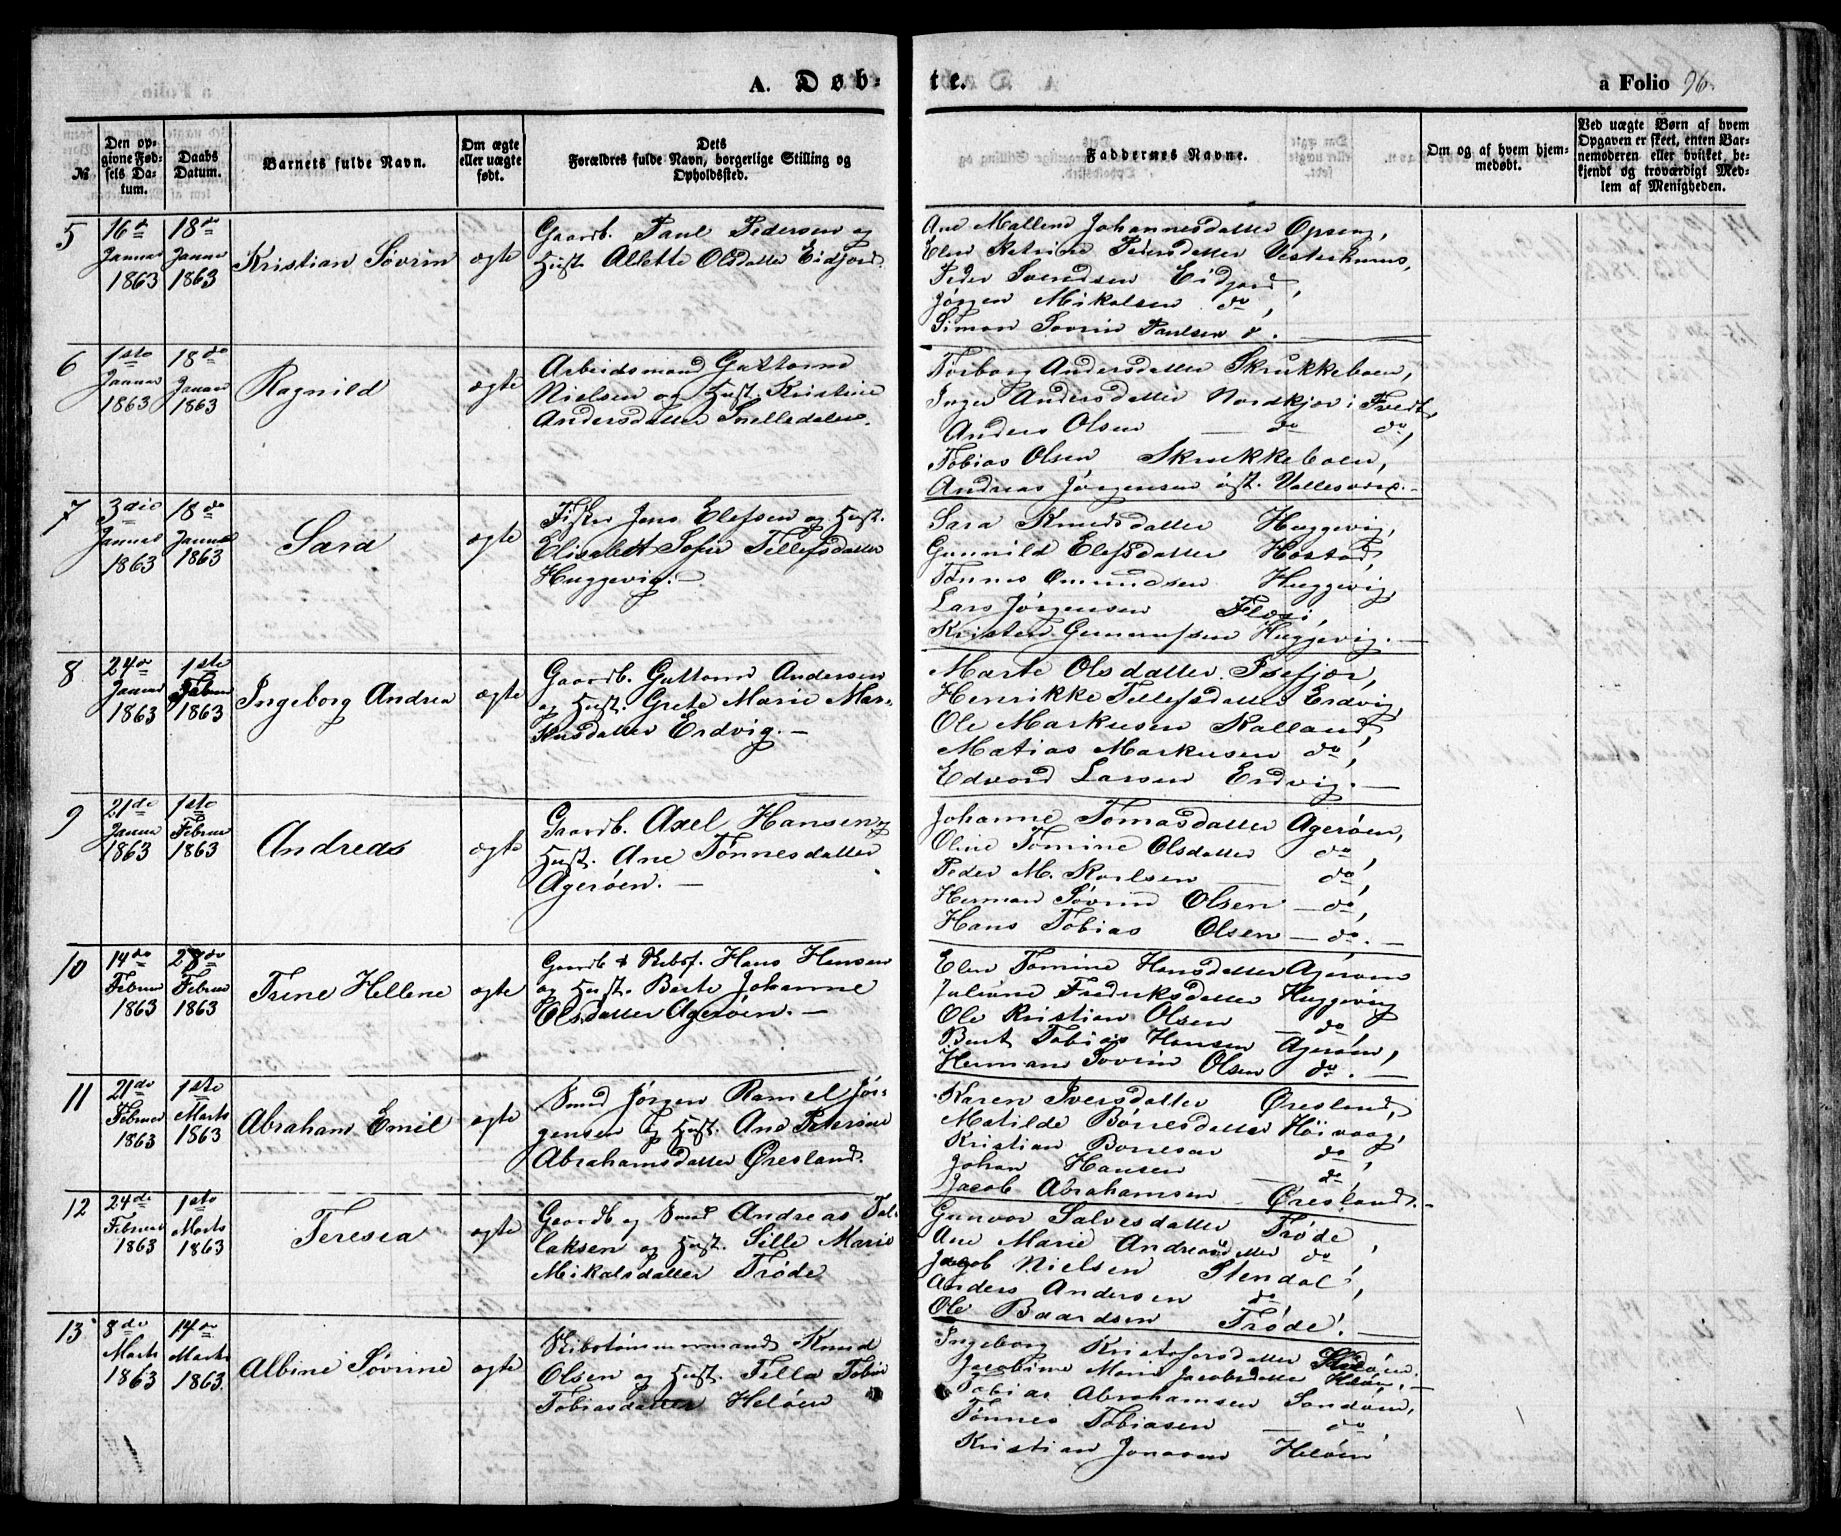 A. Døb-
te.
a Folio 96.
№
Den opgivne Fødsels Datum.
Daabs Datum.
Barnets fulde Navn.
Om ægte eller uægte født.
Dets Forældres fulde Navn, borgerlige Stilling og Opholdssted.
Faddernes Navne.
Om og af hvem hjemmedøbt.
Ved uægte Børn af hvem Opgaven er skeet, enten Barnemoderen eller hvilket, bekjendt og troværdigt Medlem af Menigheden.
5
16de Januar 1863
18de Januar 1863
Kristian Søvrin
ægte
Gaardb. Paul Pedersen og
Hust. Allette Olsdatter Eidjord.
Ane Mallene Johannesdatter Opseng,
Elen Katrine Pedersdatter Vesterhuus,
Peder Svendsen Eidjord,
Jørgen Mikalsen do,
Simon Sovrin Paulsen d.
6
1ste Januar 1863
18de Januar 1863
Ragnild
ægte
Arbeidsmand Guttorm
Nielsen og Hust. Kristine
Andersdatter Snelledalen.
Torborg Andersdatter Skrukkeboen,
Inger Andersdatter Nordkjør i Tvedt,
Anders Olsen — do do,
Tobias Olsen Skrukkeboen,
Andreas Jørgensen øst. Vallesværd.—
7
3die Januar 1863
18de Januar 1863
Sara
ægte
Fisker Jens Elefsen og Hust.
Elisabet Sofie Tellefsdatter
Huggevig.—
Sara Knudsdatter Huggevig,
Gunnild Elefsdatter Høstad,
Tønnes Omundsen Huggevig,
Lars Jørgensen
Kristen Gunnufsen Huggevig.—
8
24de Januar 1863
1ste Februar 1863
Ingeborg Andrea
ægte
Gaardb. Guttorm Andersen
og Hust. Grete Marie Mar-
kusdatter Erdvig.—
Marte Olsdatter Isefjær,
Henrikke Tellefsdatter Erdvig,
Ole Markusen Kalland,
Matias Markusen do,
Edvard Larsen Erdvig.—
9
21de Januar 1863
1ste Februar 1863
Andreas
ægte
Gaardb. Axel Hansen og
Hust. Ane Tønnesdatter
Agerøen.—
Johanne Tomasdatter Agerøen,
Oline Tomine Olsdatter do,
Peder M. Karlsen — do,
Herman Søvrin Olsen — do,
Hans Tobias Olsen — do.—
10
14de Februar 1863
Februar 1863
Trine Hellene
ægte
Gaardb & Skibsf. Hans Hansen
og Hust. Berte Johanne
Olsdatter Agerøen.—
Elen Tomine Hansdatter Agerøen
Juliane Fredriksdatter Huggevig
Ole Kristian Olsen — do,
Bent Tobias Hansen Agerøen,
Herman Sovrin Olsen do.—
11
21de Februar 1863
1ste Marts 1863
Abraham Emil
ægte
Smed Jørgen Ramel Jør-
gensen og Hust. Ane Petersine
Abrahamsdatter Øresland.
Karen Iversdatter Øresland,
Matilde Børresdatter Høivaag,
Kristian Borresen do,
Johan Hansen do,
Jacob Abrahamsen Øresland.—
12
24de Februar 1863
1ste Marts 1863
Teresea
ægte
Gaardb og Smed Andreas Tel-
laksen og Hust. Sille Marie
Mikalsdatter Trøde
Gunvor Salvesdatter Trøde,
Ane Marie Andreasdatter do,
Jacob Nielsen Stendal,
Anders Andersen do,
Ole Baardsen Trøde.—
13
8de Marts 1863
14de Marts 1863.
Albine Søvrine
ægte
Skibstømmermand Knud
Olsen og Hust. Tella Tobie
Tobiasdatter Heløen
Ingeborg Kristofersdatter
Jacobine Marie Jacobsdatter Heløen,—
Tobias Abrahamsen Sandøen,
Tønnes Tobiasen do
Kristian Jonasen Heløen